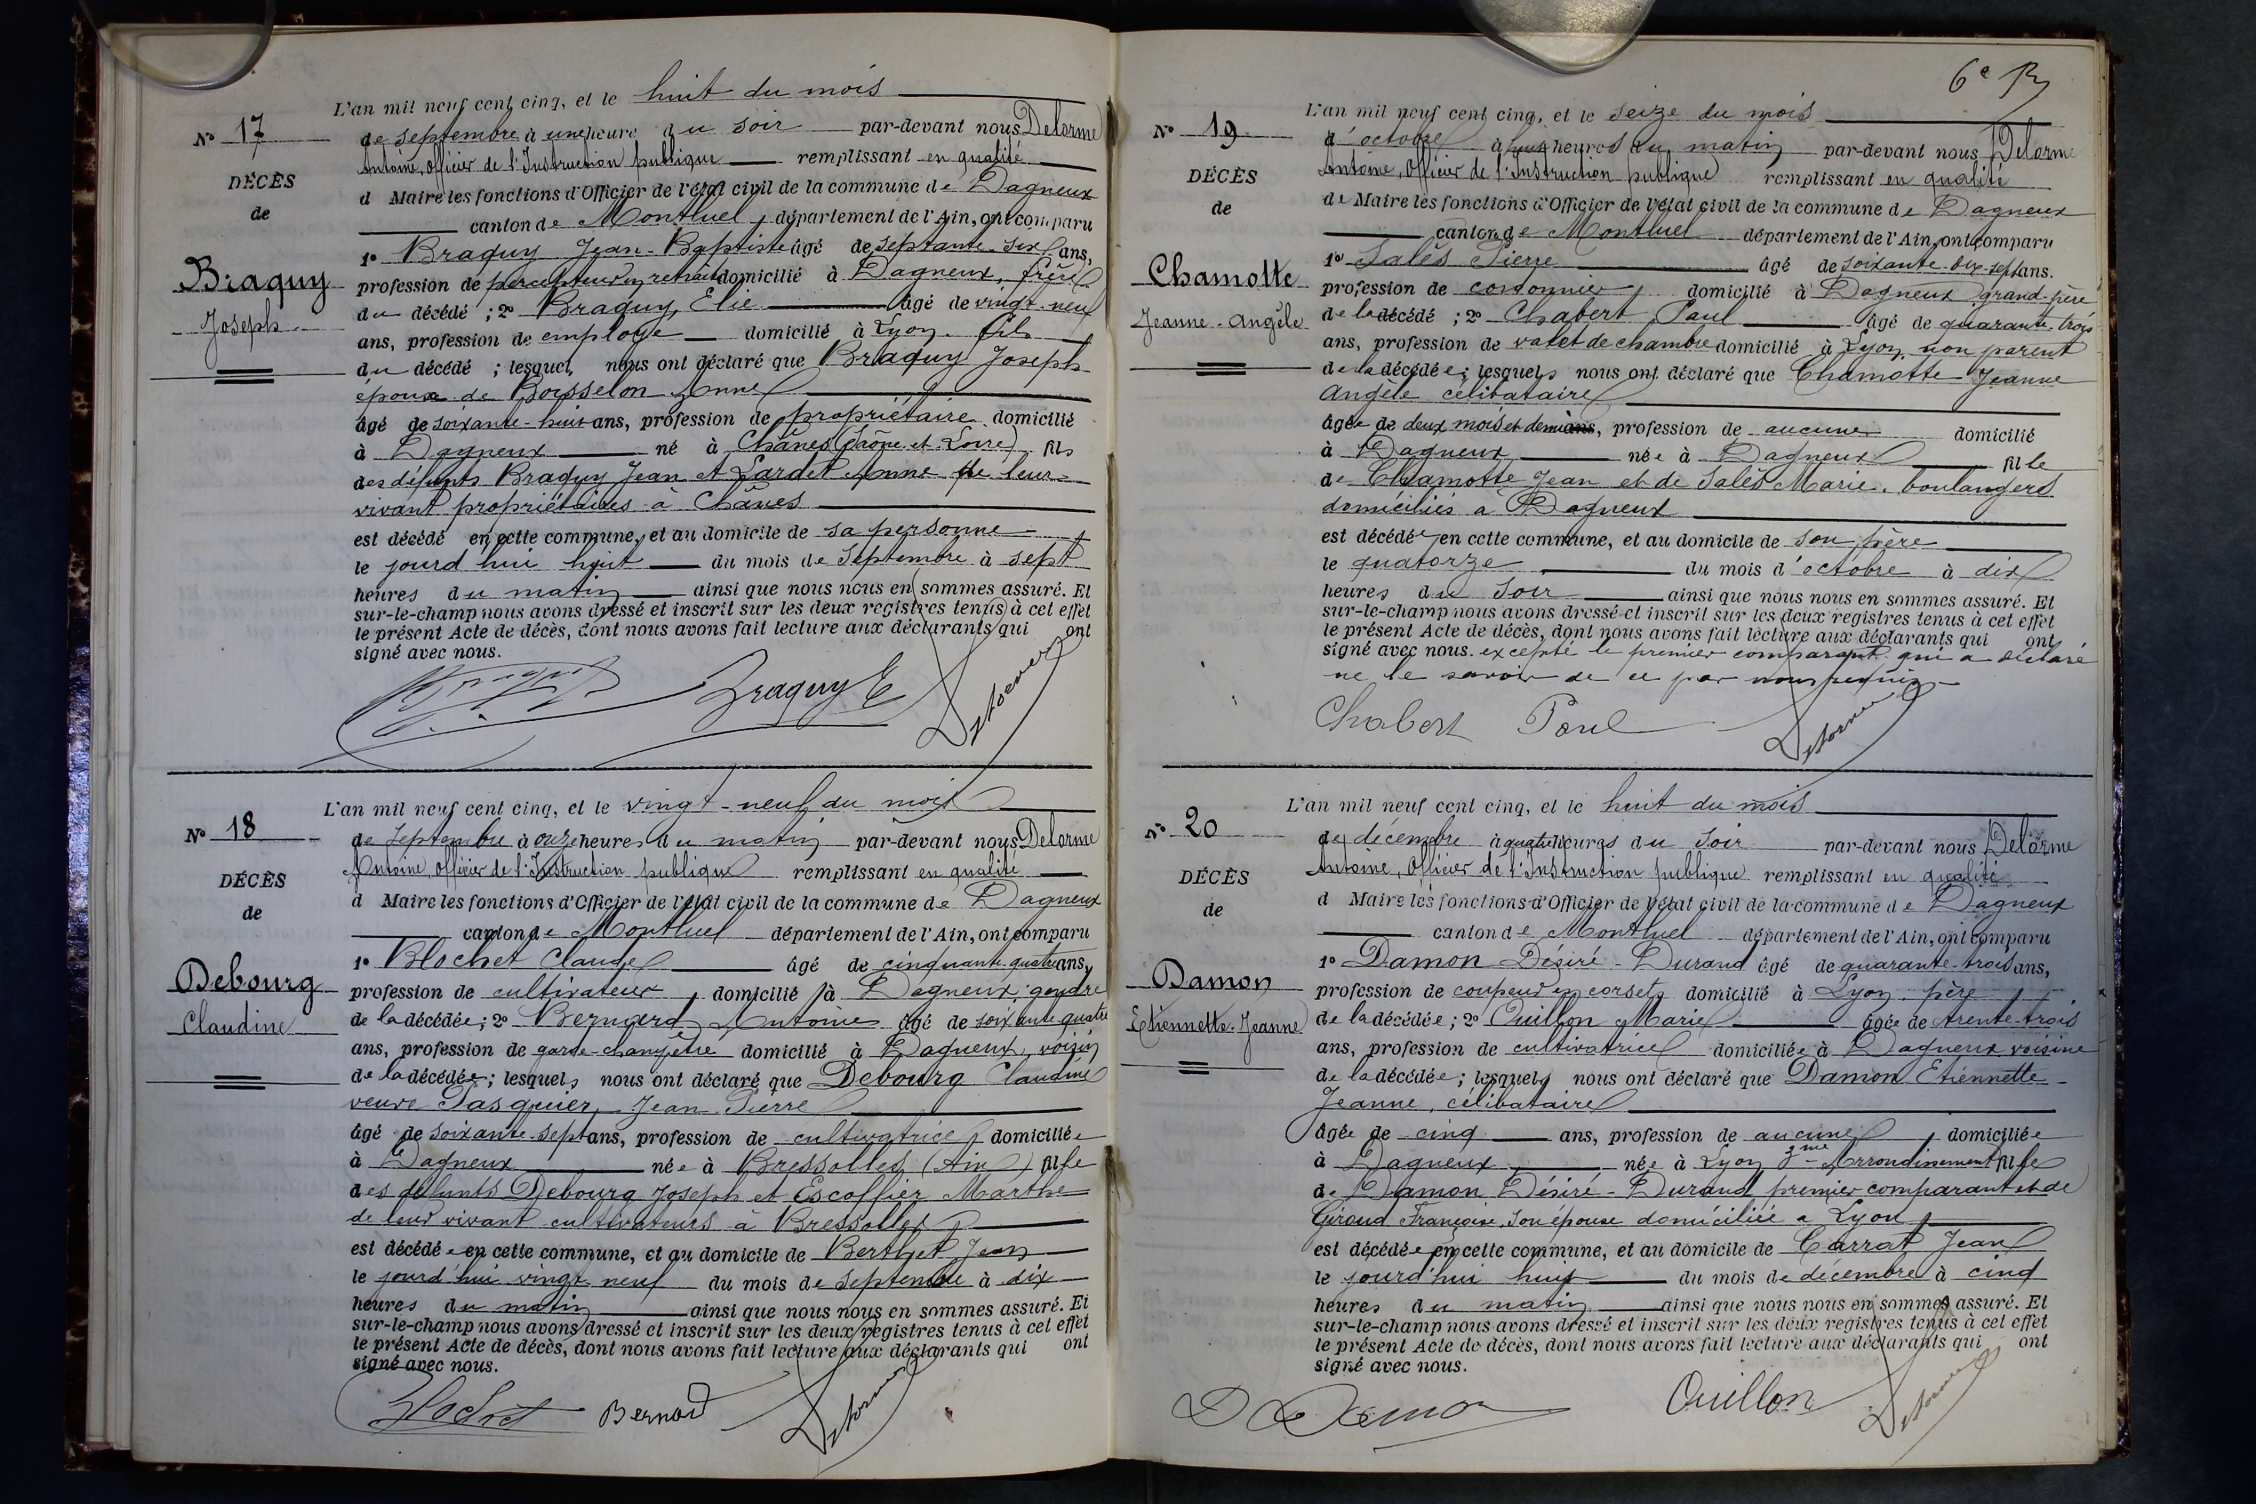 L'an mil neuf cent cinq, et le huit du mois
No 17
de septembre à une heure du soir par-devant nous Delorme
Antoine, Officier de l'Instruction publique remplissant en qualité
DÉCÈS
d Maire les fonctions d'Officier de l'état civil de la commune de Dagneux
de
canton de Montluel, département de l'Ain, ont comparu
1o Braquy Jean-Baptiste âgé de septante-six ans,
Braquy
profession de percepteur en retraite domicilié à Dagneux, frère
Joseph
du décédé ; 2o Braquy Elie âgé de vingt-neuf
ans, profession de employé domicilié à Lyon, fils
du décédé ; lesquels nous ont déclaré que Braquy Joseph
époux de Boisselon Anne
âgé de soixante-huit ans, profession de propriétaire domicilié
à Dagneux né à Chânes (Saône-et-Loire) fils
des défunts Braquy Jean et Lardet Anne de leur
vivant propriétaires à Chânes
est décédé en cette commune, et au domicile de sa personne
le jourd'hui huit du mois de Septembre à sept
heures du matin ainsi que nous nous en sommes assuré. Et
sur-le-champ nous avons dressé et inscrit sur les deux registres tenus à cet effet
le présent Acte de décès, dont nous avons fait lecture aux déclarants qui ont
signé avec nous.
Braquy E Delorme
L'an mil neuf cent cinq, et le vingt-neuf du mois
No 18
de Septembre à onze heures du matin par-devant nous Delorme
Antoine, officier de l'Instruction publique remplissant en qualité
DÉCÈS
d Maire les fonctions d'Officier de l'état civil de la commune de Dagneux
de
canton de Montluel département de l'Ain, ont comparu
1o Blochet Claude âgé de cinquante-quatre ans,
Debourg
profession de cultivateur, domicilié à Dagneux, gendre
Claudine
de la décédée ; 2o Bernard Antoine âgé de soixante quatre
ans, profession de garde-champêtre domicilié à Dagneux, voisin
de la décédée ; lesquels nous ont déclaré que Debourg Claudine
veuve Pasquier Jean Pierre
âgé de soixante-sept ans, profession de cultivatrice, domiciliée
à Dagneux née à Bressolles (Ain) fille
des défunts Debourg Joseph et Escoffier Marthe
de leur vivant cultivateurs à Bressolles
est décédée en cette commune, et au domicile de Berthet Jean
le jourd'hui vingt neuf du mois de septembre à dix
heures du matin ainsi que nous nous en sommes assuré. Et
sur-le-champ nous avons dressé et inscrit sur les deux registres tenus à cet effet
le présent Acte de décès, dont nous avons fait lecture aux déclarants qui ont
signé avec nous.
Blochet Bernard Delorme
6e
L'an mil neuf cent cinq, et le seize du mois
No 19
d'octobre à huit heures du matin par-devant nous Delorme
Antoine, Officier de l'Instruction publique remplissant en qualité
DÉCÈS
de Maire les fonctions d'Officier de l'état civil de la commune de Dagneux
de
canton de Montluel département de l'Ain, ont comparu
1o Salès Pierre âgé de soixante-dix-sept ans.
Chamotte
profession de cordonnier, domicilié à Dagneux grand-père
Jeanne-Angèle
de la décédé ; 2o Chabert Paul âgé de quarante-trois
ans, profession de valet de chambre domicilié à Lyon, non parent
de la décédée ; lesquels nous ont déclaré que Chamotte Jeanne
Angèle célibataire
âgée de deux mois et demi ans, profession de aucune domicilié
à Dagneux née à Dagneux fille
de Chamotte Jean et de Salès Marie, boulangers
domiciliés à Dagneux
est décédée en cette commune, et au domicile de son père
le quatorze du mois d'octobre à dix
heures du Soir ainsi que nous nous en sommes assuré. Et
sur-le-champ nous avons dressé et inscrit sur les deux registres tenus à cet effet
le présent Acte de décès, dont nous avons fait lecture aux déclarants qui ont
signé avec nous. excepté le premier comparant qui a déclaré
ne le savoir de ce par nous requis
Chabert Paul Delorme
L'an mil neuf cent cinq, et le huit du mois
No 20
de décembre à quatre heures du Soir par-devant nous Delorme
Antoine, Officier de l'Instruction publique remplissant en qualité
DÉCÈS
d Maire les fonctions d'Officier de l'état civil de la commune de Dagneux
de
canton de Montluel département de l'Ain, ont comparu
1o Damon Désiré-Durand âgé de quarante-trois ans,
Damon
profession de coupeur en corsets domicilié à Lyon, père
Etiennette-Jeanne
de la décédée ; 2o Ouillon Marie âgée de trente-trois
ans, profession de cultivatrice domiciliée à Dagneux voisine
de la décédée ; lesquels nous ont déclaré que Damon Etiennette
Jeanne, célibataire
âgée de cinq ans, profession de aucune, domiciliée
à Dagneux née à Lyon 3me Arrondissement fille
de Damon Désiré-Durand premier comparant et de
Giroud Françoise, son épouse domiciliée a Lyon
est décédée en cette commune, et au domicile de Carrat Jean
le jourd'hui huit du mois de décembre à cinq
heures du matin ainsi que nous nous en sommes assuré. Et
sur-le-champ nous avons dressé et inscrit sur les deux registres tenus à cet effet
le présent Acte de décès, dont nous avons fait lecture aux déclarants qui ont
signé avec nous.
D Damon Ouillon Delorme